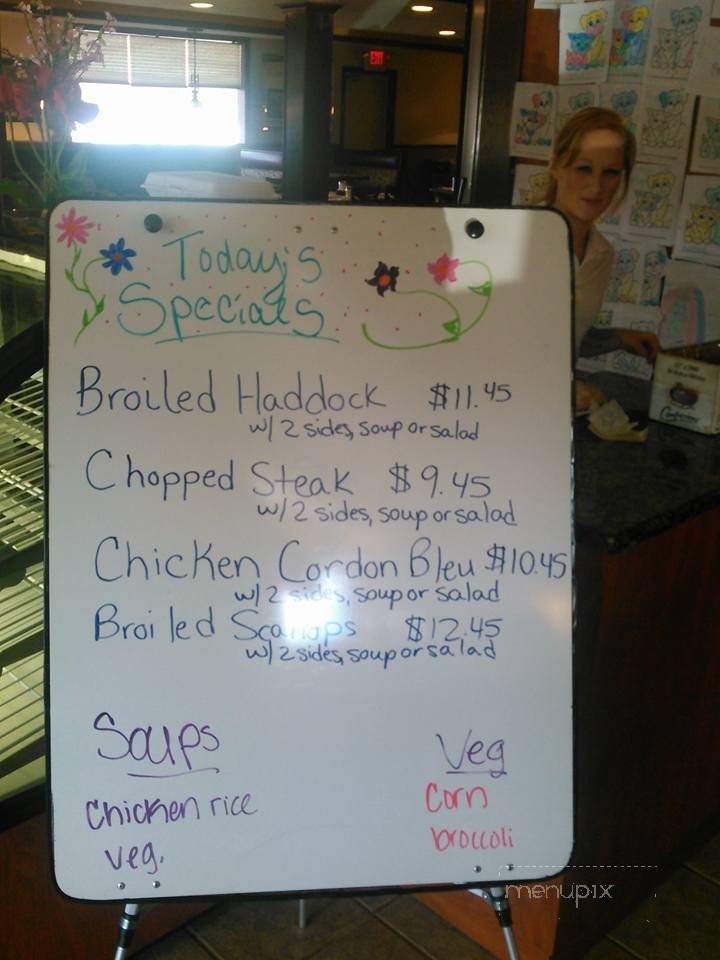 EXIT
Today's
Specials
Broiled Haddock $11.45
w/ 2 sides, soup or salad
Chopped Steak $9.45
w/ 2 sides, soup or salad
Chicken Cordon Bleu $10.45
w/ 2 sides, soup or salad
Broiled Scallops $12.45
w/ 2 sides, soup or salad
Soups
Veg
Chicken rice
Corn
veg.
broccoli
menupix